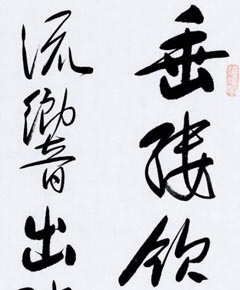 垂緌飲
流響出